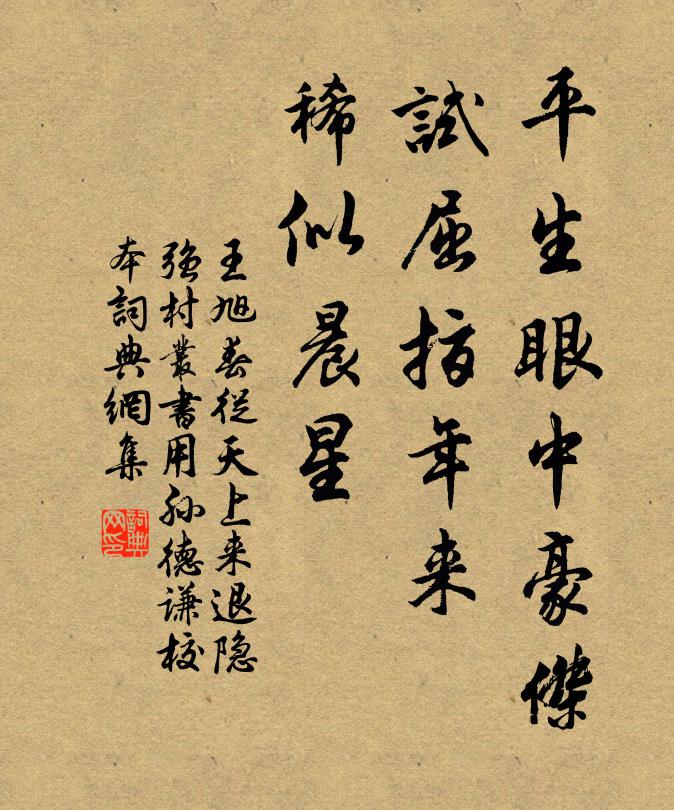 平生眼中豪傑
試屈指年来
稀似晨星
王旭春從天上来退隐
强村叢書用孙德谦校
本詞典網集
詞典网印